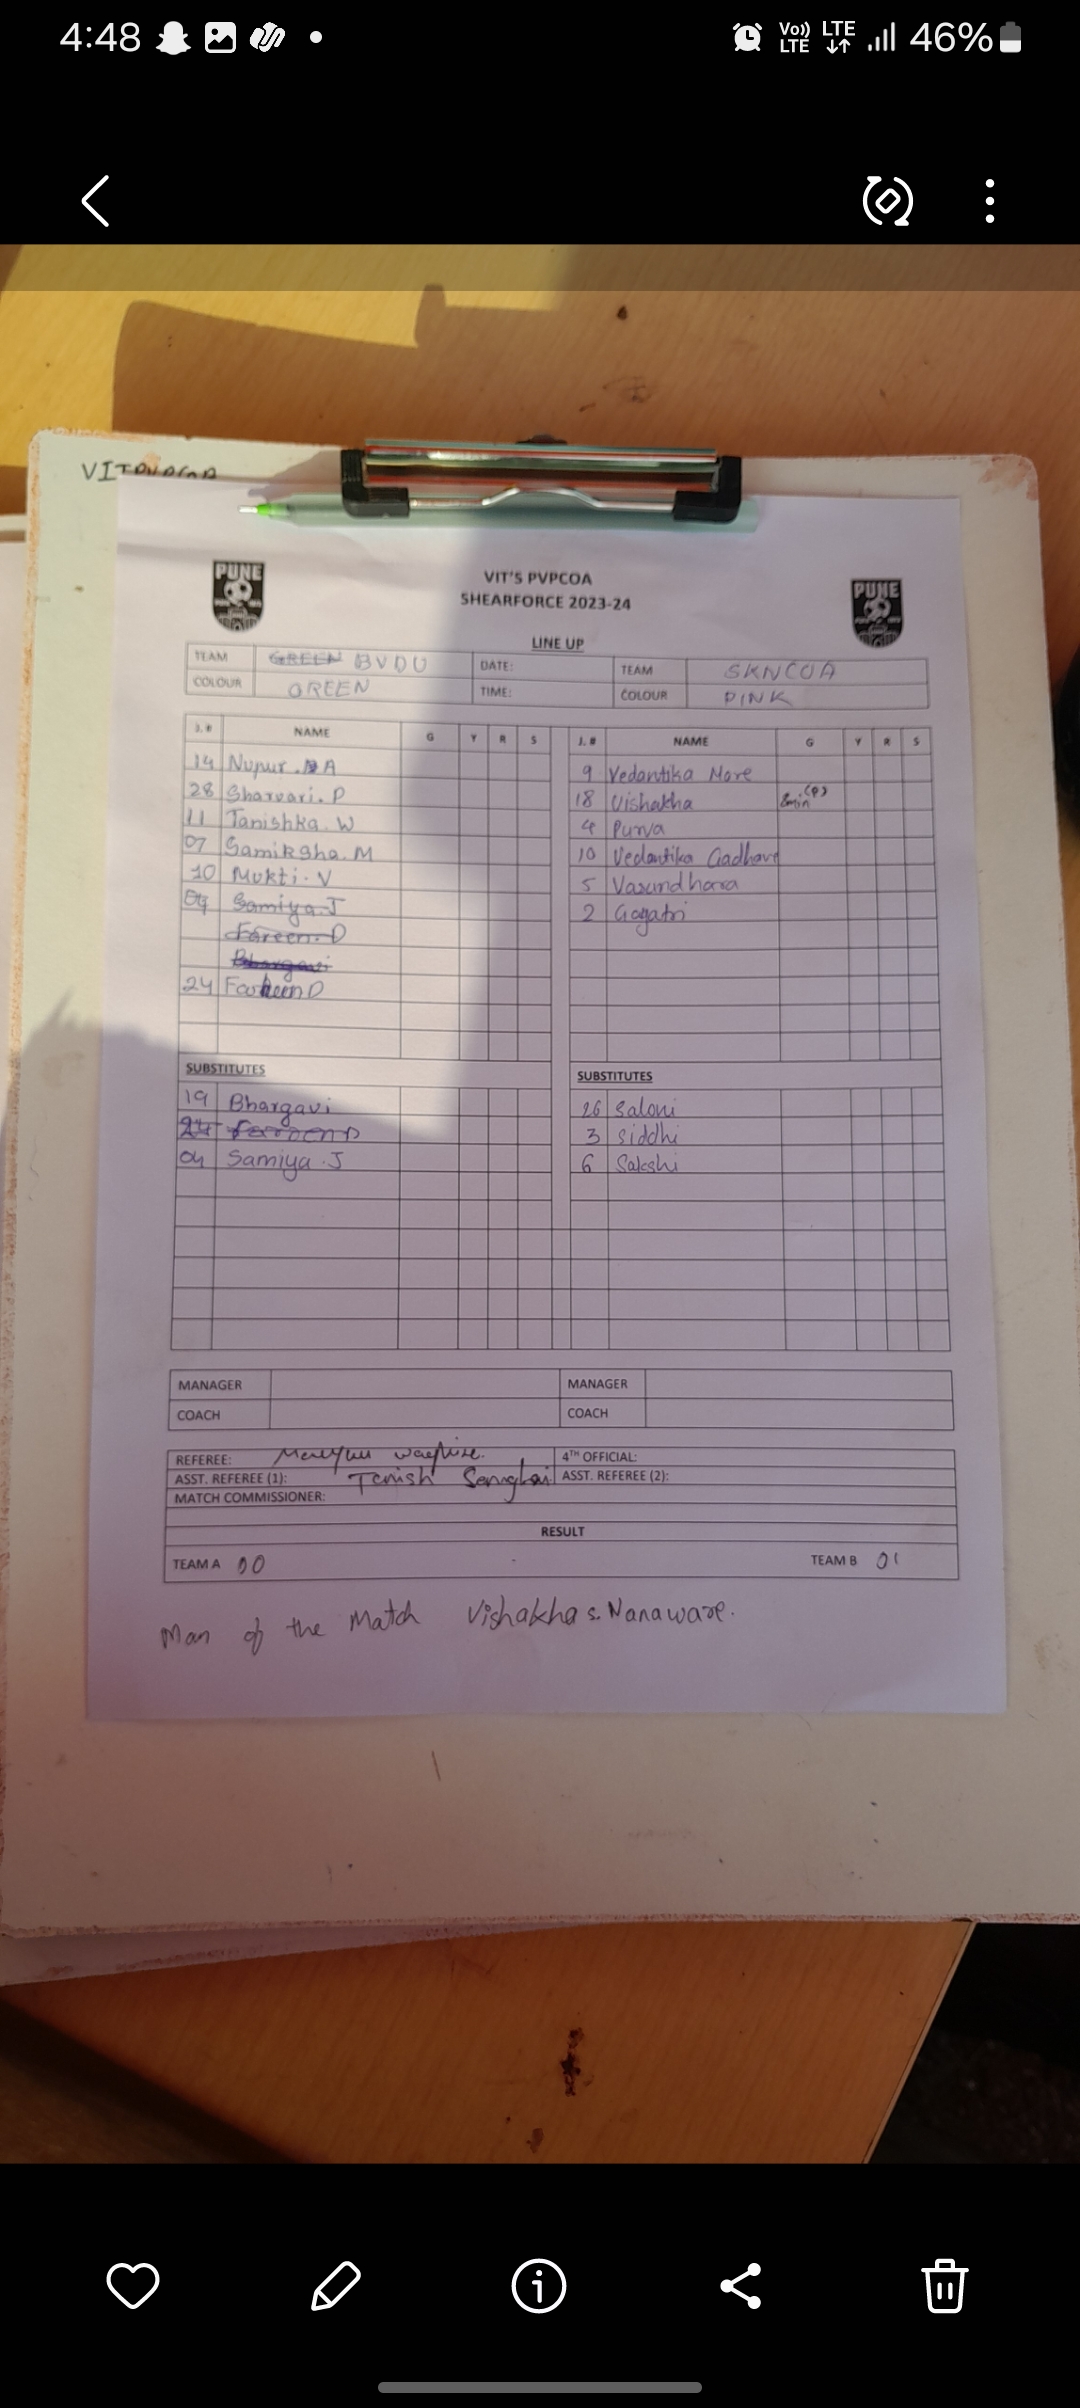 4:48
Vo)) LTE LTE 46%
VITPVPCOA
PUNE
PUNE
VIT'S PVPCOA
SHEARFORCE 2023-24
LINE UP
TEAM GREEN BVDU DATE: TEAM SKNCOA
COLOUR GREEN TIME: COLOUR PINK
J.# NAME G Y R S J.# NAME G Y R S
14 Nupur. A 9 Vedantika More
28 Sharvari. P 18 Vishakha 8min (P)
11 Tanishka. W 4 Purva
07 Samiksha. M 10 Vedantika Gadhave
10 Mukti. V 5 Vasundhara
04 Samiya. J 2 Gayatri
Fareen. D
Bhargavi
24 Farheen D
SUBSTITUTES SUBSTITUTES
19 Bhargavi 26 Saloni
24 Fareen D 3 Siddhi
04 Samiya. J 6 Sakshi
MANAGER MANAGER
COACH COACH
REFEREE: 4TH OFFICIAL:
ASST. REFEREE (1): Tanish Sanghai ASST. REFEREE (2):
MATCH COMMISSIONER:
RESULT
TEAM A 00 - TEAM B 01
Man of the Match Vishakha S. Nanaware.